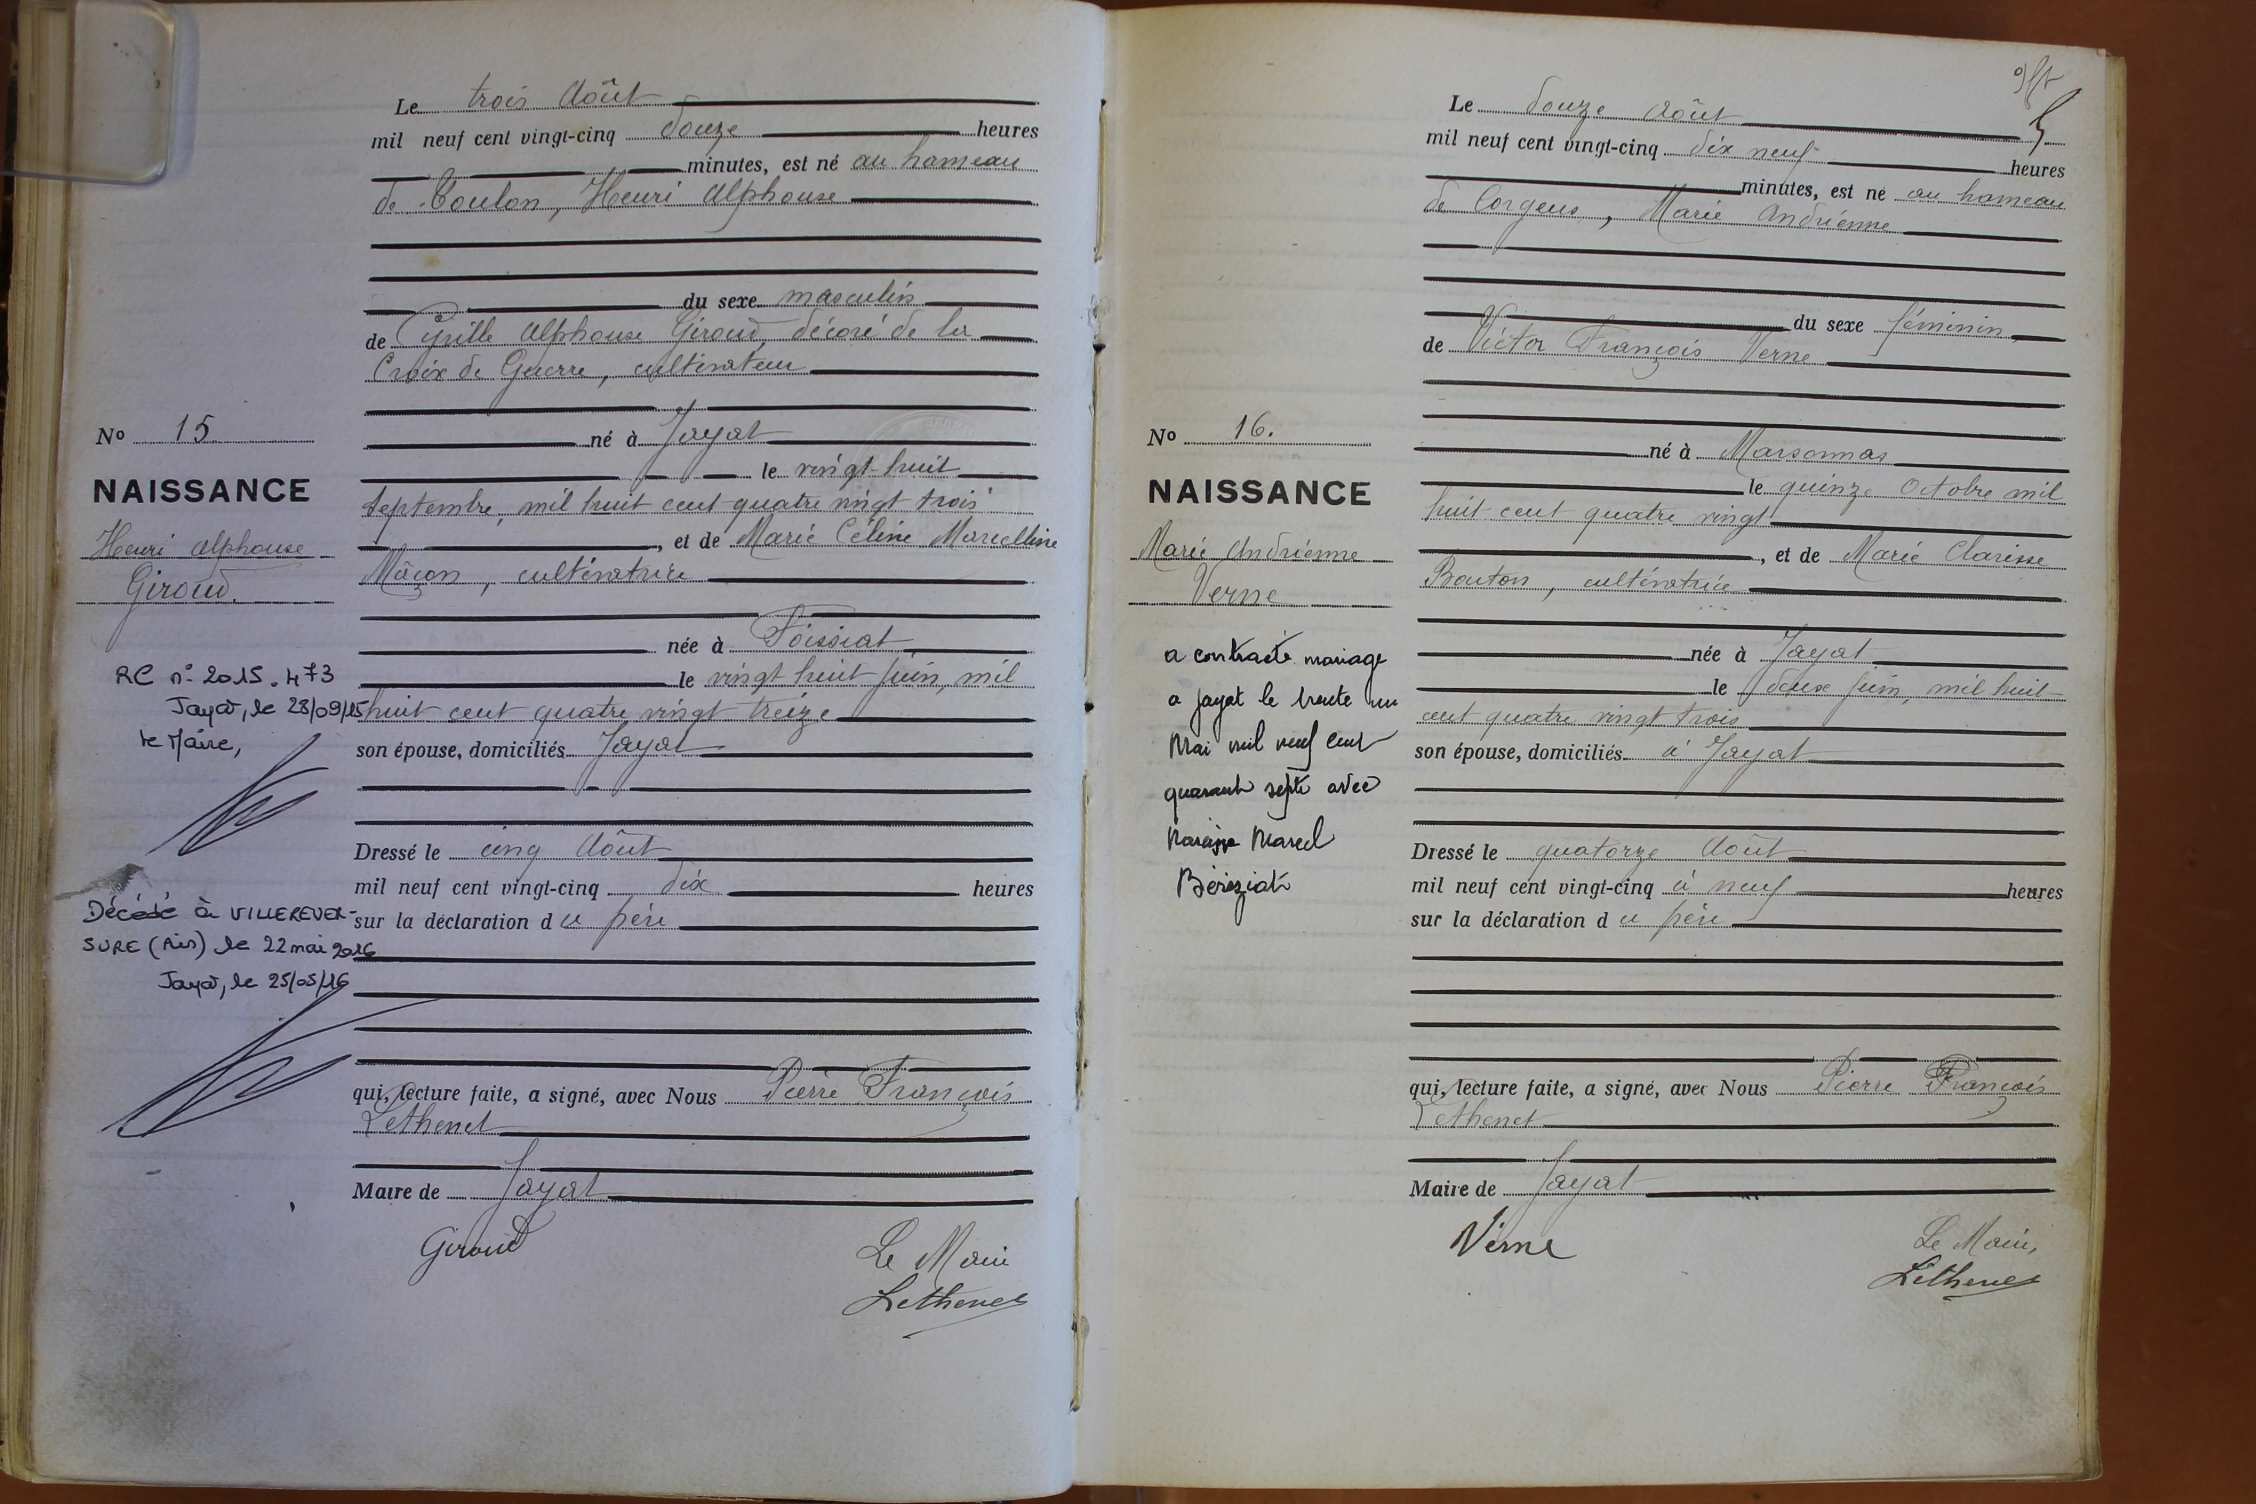 Le trois Août
mil neuf cent vingt-cinq douze heures
minutes, est né au hameau
de Toulon, Henri Alphonse
du sexe masculin
de Cyrille Alphonse Giroud, décoré de la
Croix de Guerre, cultivateur
No 15
né à Jayat
le vingt-huit
NAISSANCE
Septembre, mil huit cent quatre vingt trois
Henri Alphonse
, et de Marie Céline Marcelline
Giroud.
Mâçon, cultivatrice
née à Foissiat
RC n° 2015.473
le vingt huit juin, mil
Jayat, le 28/09/15
huit cent quatre vingt treize
le Maire,
son épouse, domiciliés Jayat
Dressé le cinq Août
mil neuf cent vingt-cinq dix heures
Décédé à VILLEREVER-
sur la déclaration du père
SURE (Ain) le 22 mai 2016
Jayat, le 25/05/16
qui, lecture faite, a signé, avec Nous Pierre François
Lethenet
Maire de Jayat
Giroud
Le Maire
Lethenet
Le douze Août
mil neuf cent vingt-cinq dix neuf heures
minutes, est né au hameau
de Corgens, Marie Andrienne
du sexe féminin
de Victor François Verne
No 16.
né à Marsonnas
NAISSANCE
le quinze Octobre mil
huit cent quatre vingt
Marie Andrienne
, et de Marie Clarisse
Verne
Bouton, cultivatrice
a contracté mariage
née à Jayat
a Jayat le trente un
le deux juin, mil huit
cent quatre vingt trois
Mai mil neuf cent
son épouse, domiciliés à Jayat
quarante sept avec
Marcel
Dressé le quatorze Août
Béréziat
mil neuf cent vingt-cinq à neuf heures
sur la déclaration du père
qui, lecture faite, a signé, avec Nous Pierre François
Lethenet
Maire de Jayat
Verne
Le Maire,
Lethenet